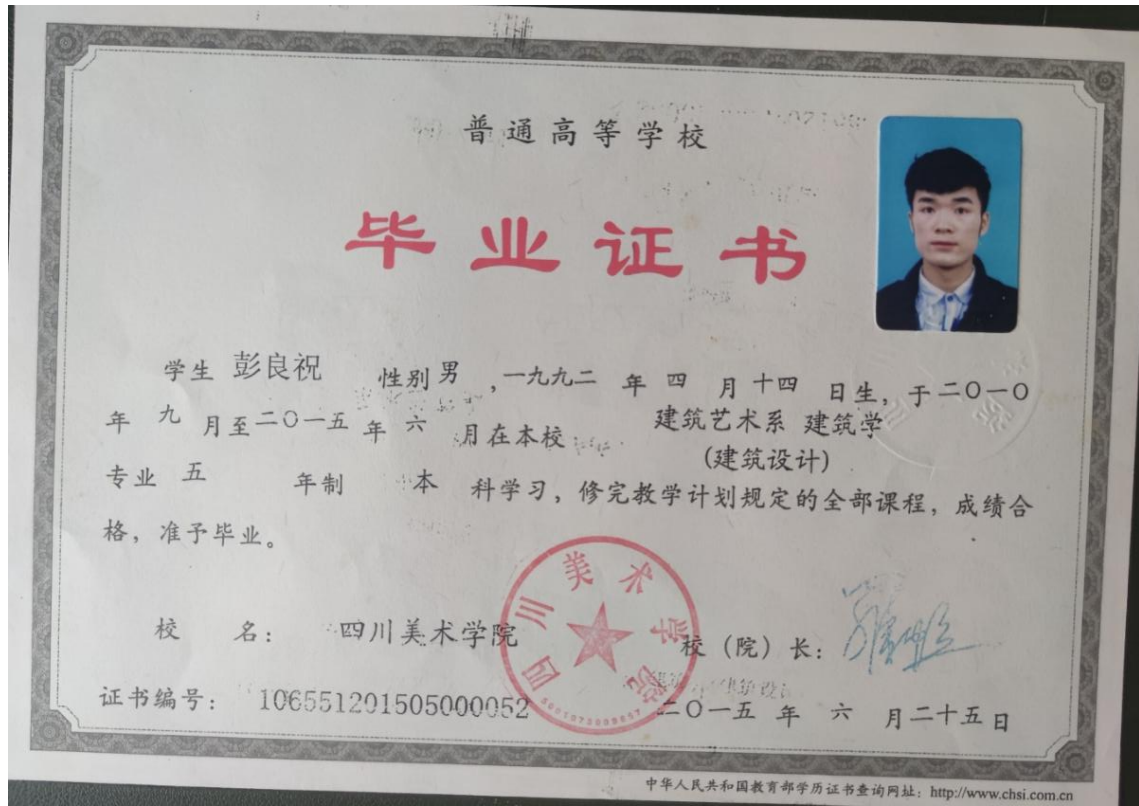 普通高等学校
毕业证书
学生 彭良祝 性别 男 ,一九九二 年 四 月 十四 日生, 于二〇一〇
年 九 月至二〇一五 年 六 月在本校 建筑艺术系 建筑学
(建筑设计)
专业 五 年制 本 科学习, 修完教学计划规定的全部课程, 成绩合
格, 准予毕业。
四川美术学院
校 名: 四川美术学院 校(院)长:
证书编号: 106551201505000052 二〇一五 年 六 月二十五日
中华人民共和国教育部学历证书查询网址: http://www.chsi.com.cn